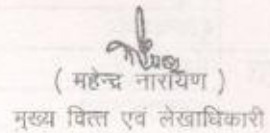 ( महेन्द्र नारायण )
मुख्य वित्त एवं लेखाधिकारी